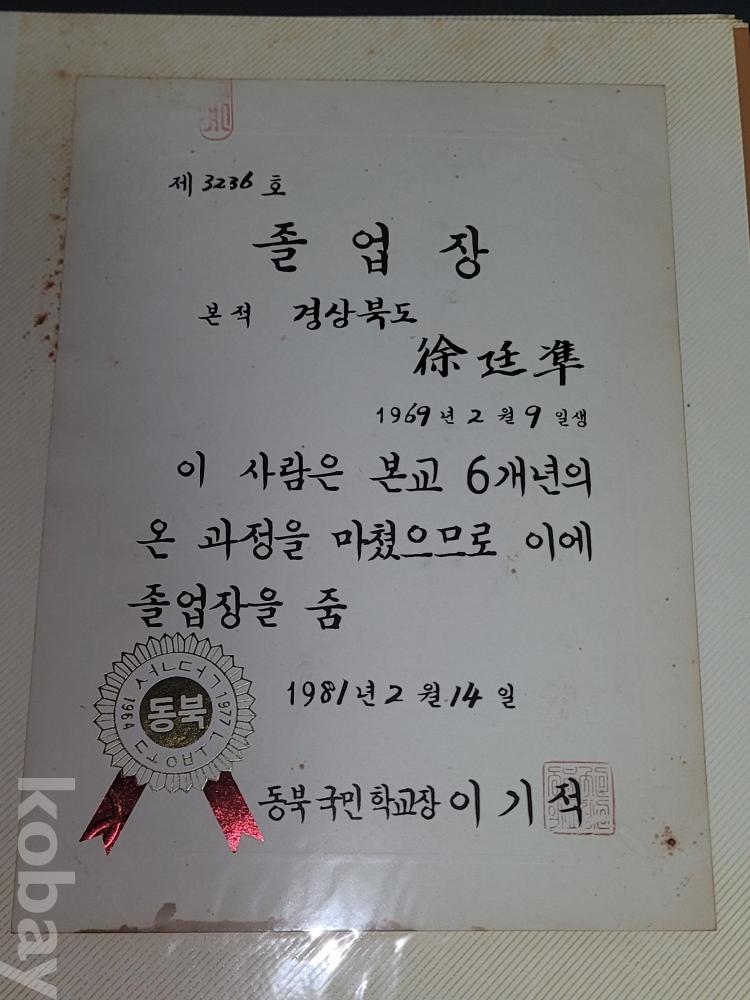 제 3236 호
졸 업 장
본적 경상북도
徐廷準
1969년 2월 9일생
이 사람은 본교 6개년의
온 과정을 마쳤으므로 이에
졸업장을 줌
1981년 2월 14일
동북국민학교장 이기적
동북
1964
1977
kobay